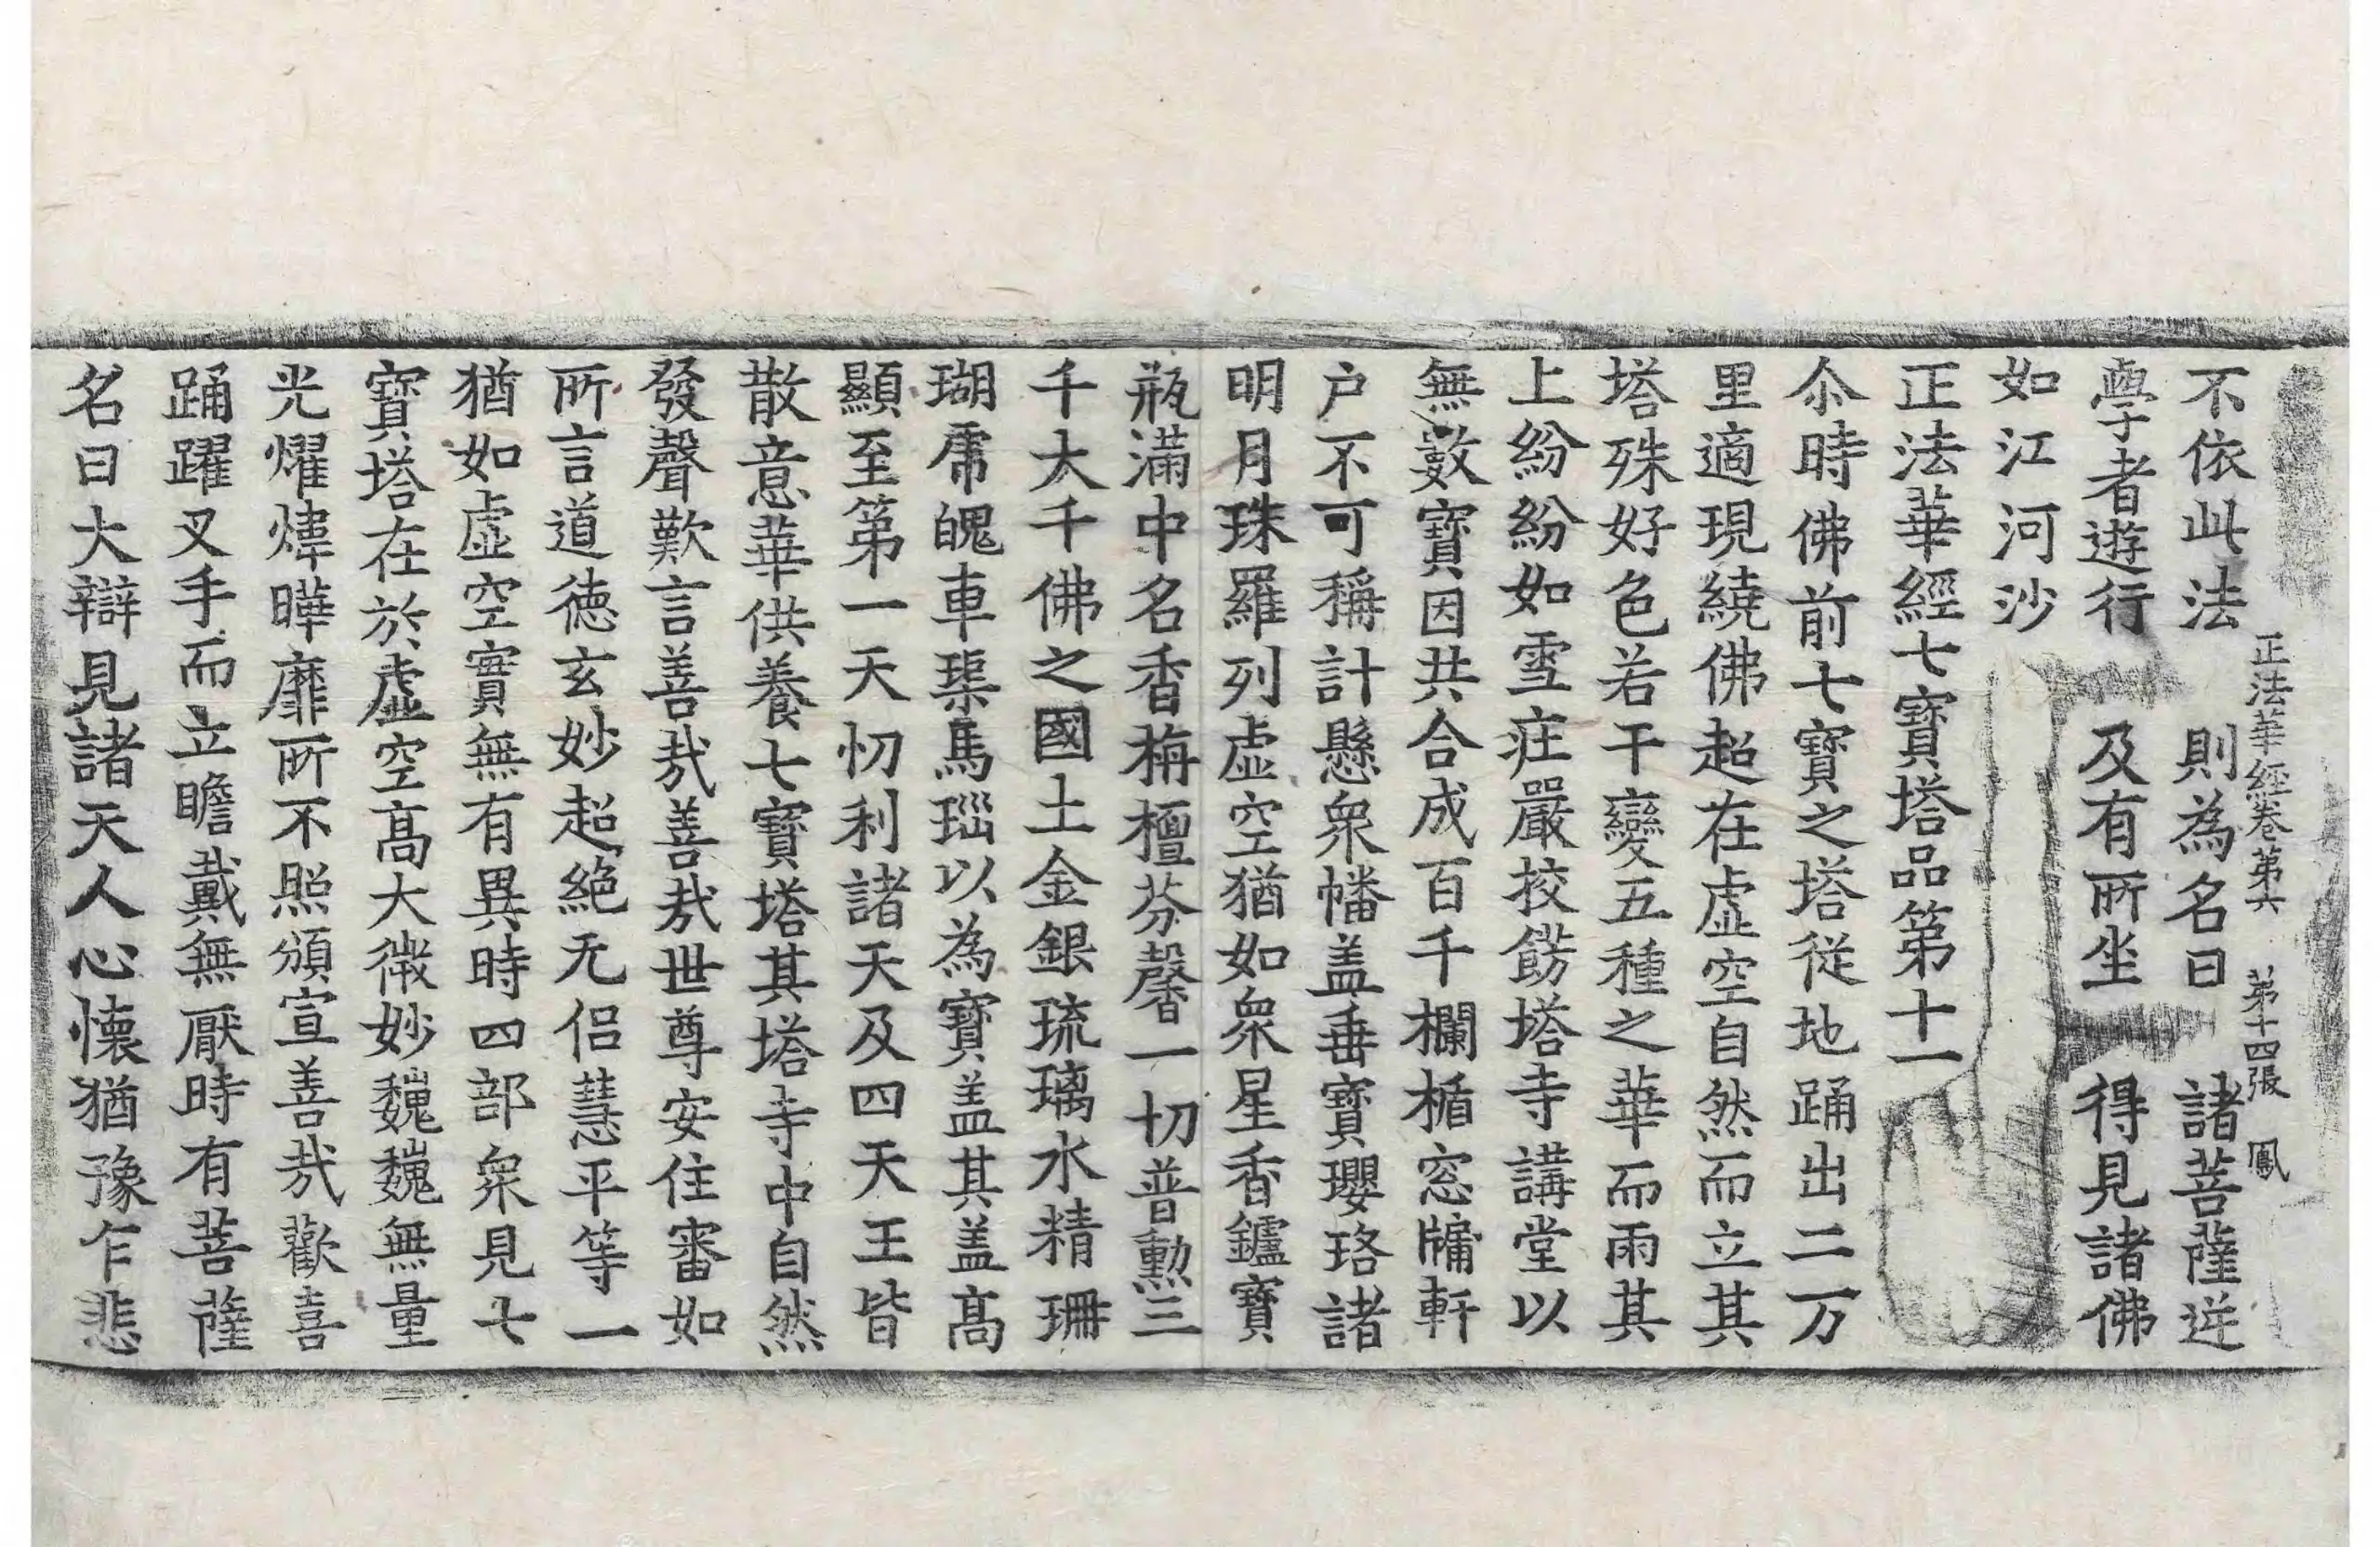 正法華經卷第六 第十四張 鳳
不依此法 則為名曰 諸菩薩逆
斈者遊行 及有所坐 得見諸佛
如江河沙
正法華經七寶塔品第十一
尒時佛前七寶之塔從地踊出二万
里適現繞佛超在虛空自然而立其
塔殊好色若干變五種之華而雨其
上紛紛如雪庄嚴挍餝塔寺講堂以
無數寶因共合成百千欄楯窓牖軒
户不可稱計懸衆幡盖垂寶瓔珞諸
明月珠羅列虛空猶如衆星香鑪寶
瓶滿中名香栴檀芬馨一切普勲三
千大千佛之國土金銀琉璃水精珊
瑚虎魄車璖馬瑙以為寶盖其盖髙
顯至第一天忉利諸天及四天王皆
散意華供養七寶塔其塔寺中自然
發聲歎言善哉善哉世尊安住審如
所言道德玄妙超絶无侣慧平等一
猶如虛空實無有異時四部衆見七
寶塔在於虛空髙大微妙巍巍無量
光燿煒曄靡所不照頒宣善哉歡喜
踊躍叉手而立瞻戴無厭時有菩薩
名曰大辯見諸天人心懷猶豫乍悲